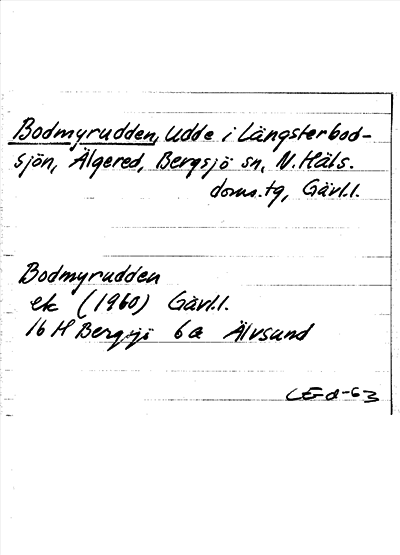 Bodmyrudden, Udde i Långsterbod-
sjön, Älgered, Bergsjö sn, N. Häls.
doms.tg, Gävl.l.
Bodmyrudden
ek (1960) Gävl.l.
16 H Bergsjö 6a Älvsund